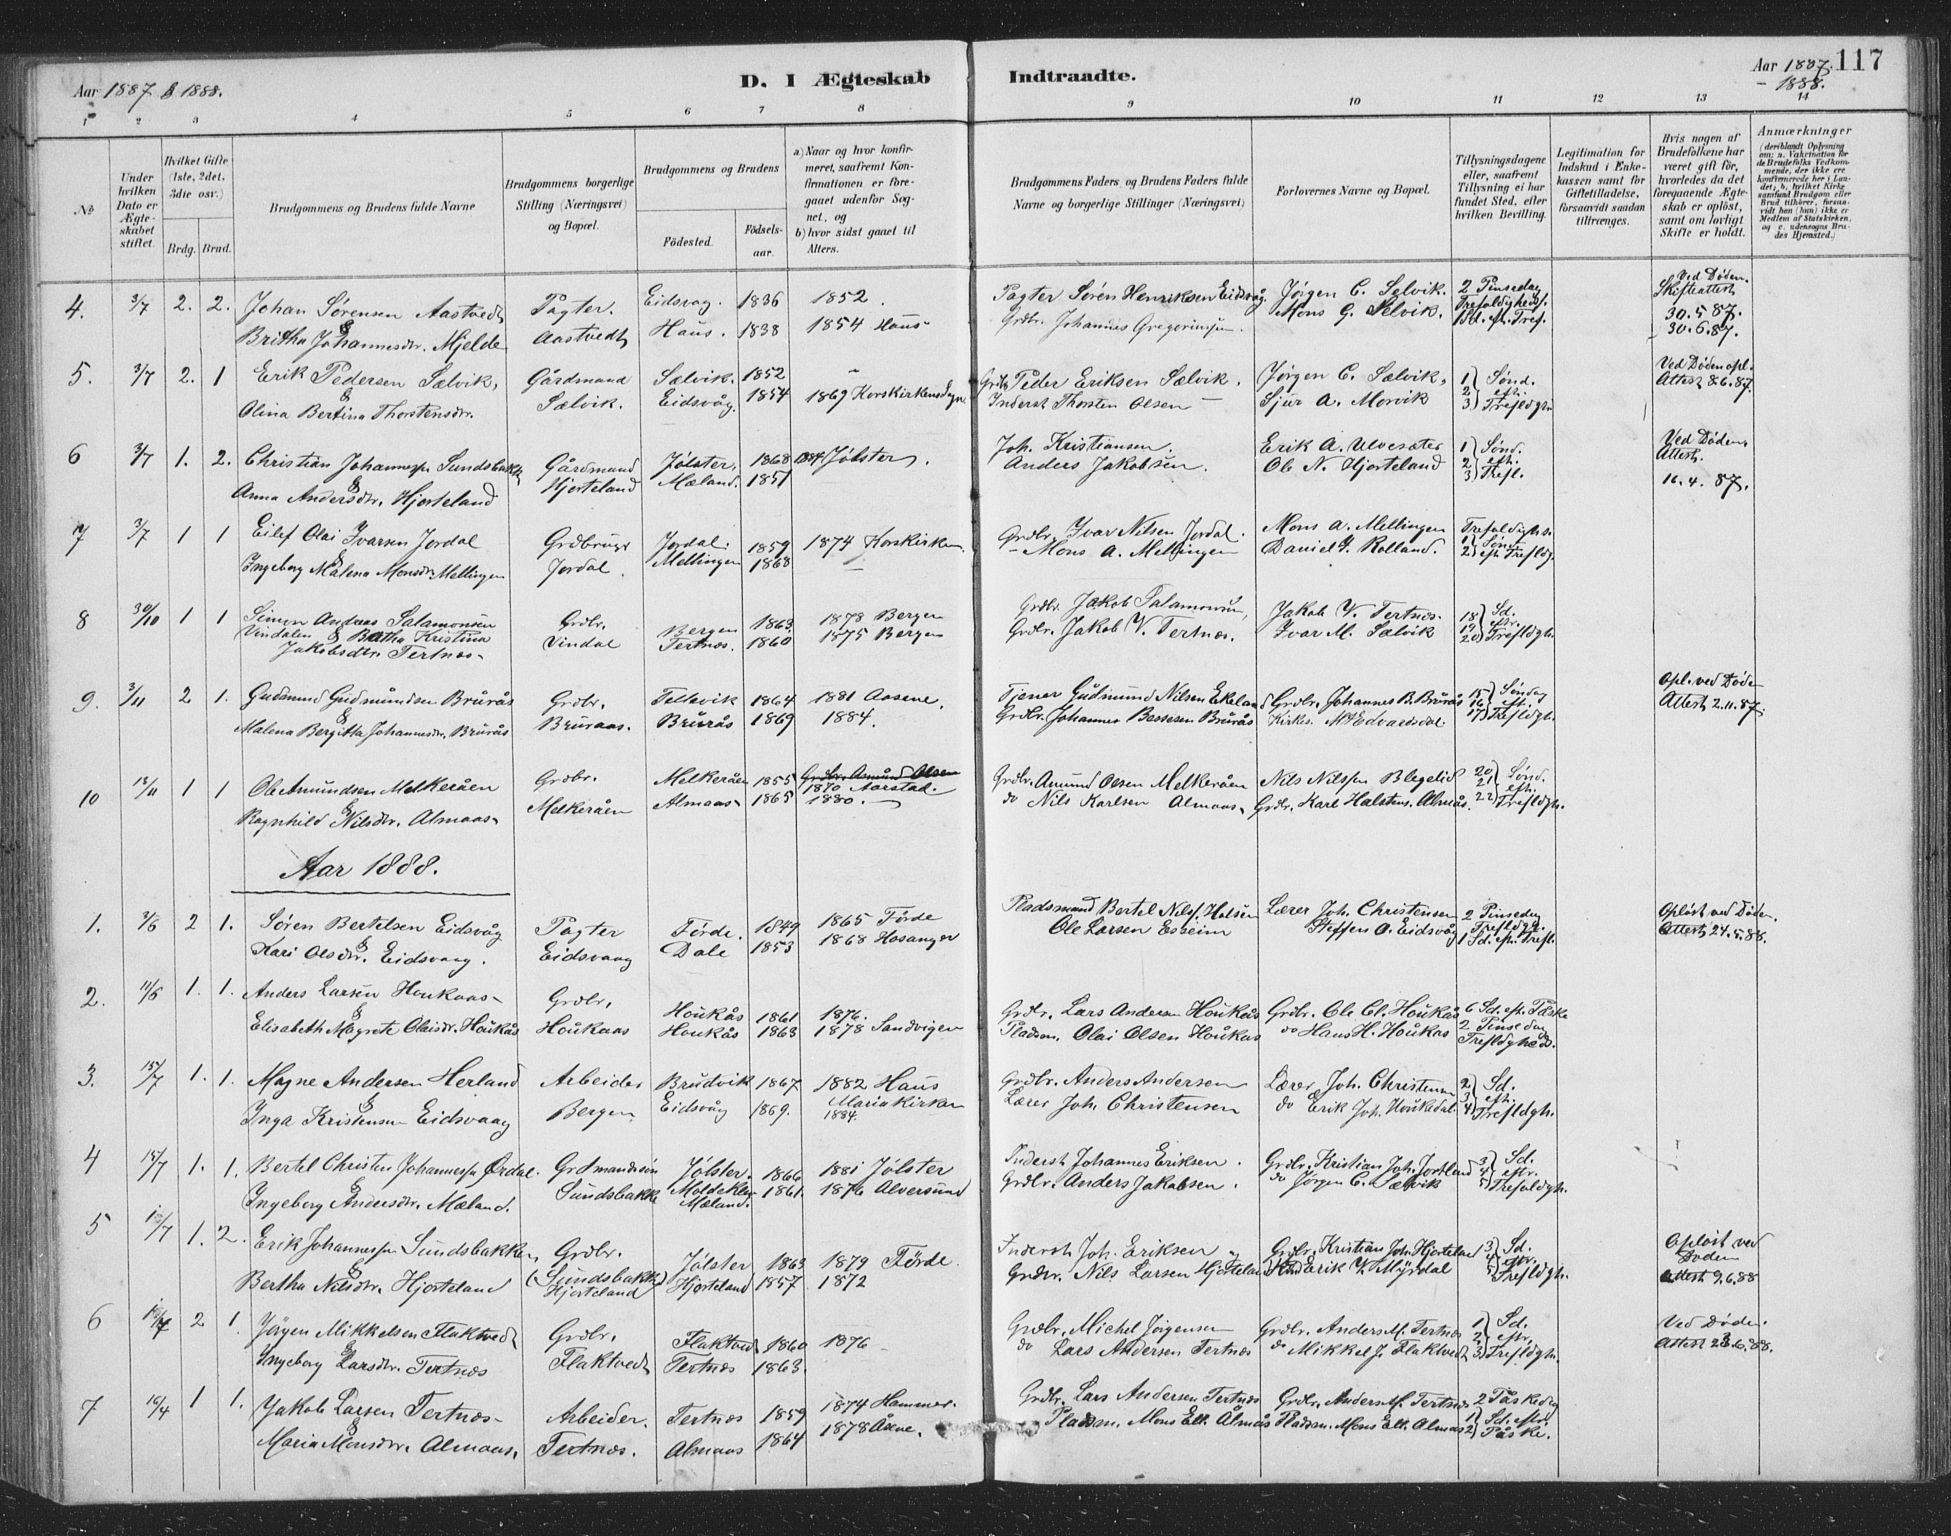 Aar 1887 & 1888.
D. I Ægteskab Indtraadte.
Aar 1887 - 1888.
117
1 2 3 4 5 6 7 8 9 10 11 12 13 14
No
Under hvilken Dato er Ægteskabet stiftet.
Hvilket Gifte (1ste, 2det, 3die osv.)
Brdg. Brud.
Brudgommens og Brudens fulde Navne
Brudgommens borgerlige Stilling (Næringsvei) og Bopæl.
Brudgommens og Brudens
Födested.
Födselsaar.
a) Naar og hvor konfirmeret, saafremt Konfirmationen er foregaaet udenfor Sognet, og
b) hvor sidst gaaet til Alters.
Brudgommens Faders og Brudens Faders fulde Navne og borgerlige Stillinger (Næringsvei)
Forlovernes Navne og Bopæl.
Tillysningsdagene eller, saafremt Tillysning ei har fundet Sted, efter hvilken Bevilling.
Legitimation for Indskud i Enkekassen samt for Giftetilladelse, forsaavidt saadan tiltrænges.
Hvis nogen af Brudefolkene har været gift før, hvorledes da det foregaaende Ægteskab er oplöst, samt om lovligt Skifte er holdt.
Anmærkninger (deriblandt Oplysning om: a. Vakcination for de Brudefolks Vedkommende, der ikke ere konfirmerede her i Landet; b. hvilket Kirkesamfund Brudgom eller Brud tilhører, forsaavidt han (hun) ikke er Medlem af Statskirken, og c. udensogns Brudes Hjemsted.)
4. 3/7 2. 2. Johan Sørensen Aastvedt Pagter. Eidsvag. 1836 1852. Pagter Sören Henriksen Eidsvåg Jørgen C. Selvik. 2 Pinsedag Ved Døden.
& Trefoldigheds. Skifteattest
Britha Johannesdr. Mjelde Aastvedt Haus. 1838 1854 Haus Grdbr. Johannes Gregoriussen Mons G. Selvik. 1 Sd. ef. Tref. 30.5.87.
30.6.87.
5. 3/7 2. 1 Erik Pedersen Sælvik, Gårdmand Sælvik. 1852 Grdbr Peder Eriksen Sælvik. Jørgen C. Sælvik, 1) Sønd. Ved Døden opl.
& 2) eft. Attest 8.6.87.
Olina Bertina Thorstensdr. Sælvik. Eidsvåg. 1854 1869 Korskirkens Sogn Inderst Thorsten Olsen Sjur A. Morvik 3) Trefldgh.
6 3/7 1. 2. Christian Johannesen Sundsbakke Gårdmand Jölster. 1868 Jölster. Joh. Kristiansen. Erik A. Ulvesæter 1) Sønd. Ved Døden
& 2) eft. Attest
Anna Andersdr. Hjorteland Hjorteland Mæland. 1851 Anders Jakobsen. Ole N. Hjorteland 3) Trefl. 16.4.87.
7 3/7 1 1 Eilef Olai Ivarsen Jordal Grdbruger Jordal. 1859 1874 Korskirken. Grdbr. Ivar Nilsen Jordal. Mons A. Mellingen Trefoldighds.
& 1) Sønd.
Ingeborg Malena Monsdr. Mellingen Jordal. Mellingen 1868 — Mons A. Mellingen Daniel J. Rolland. 2) eft. Trefldg.
8 30/10 1 1 Simon Andreas Salamonsen Grdbr. Bergen 1863 1878 Bergen Grdbr. Jakob Salamonsen, Jakob V. Tertnæs. 18) Sd.
Vindalen & Bertha Kristina 19) eftr.
Jakobsdtr. Tertnæs Vindal Tertnæs. 1860 1875 Bergen Grdbr. Jakob V. Tertnæs. Ivar M. Sælvik 20) Trefldgh.
9. 3/11 2 1. Gudmund Gudmundsen Brurås Grdbr. Tellevik 1864 1881 Aasene. Tjener Gudmund Nilsen Ekeland Grdbr. Johannes B. Brurås 15) Søndag Opl. ved Døden
& 16) eft. Attest 2.11.87.
Malena Bergitta Johannesdr. Brurås Bruraas. Brurås 1869 1884. Grdbr. Johannes Bessesen Brurås Kirkes. M Edvardsdal 17) Trefldgh.
10 13/11 1 1 Ole Amundsen Melkeråen Grdbr. Melkeråen 1855 Grdbr. Amund Olsen Grdbr. Amund Olsen Melkeråen Nils Nilssen Blegelid 20) Sønd.
& 1870 Aarstad. 21) eft.
Ragnhild Nilsdr. Almaas Melkeråen Almaas 1865 1880. do Nils Karlsen Almaas Grdbr. Karl Halstens. Almås. 22) Trefldgh.
Aar 1888.
1. 3/6 2 1. Søren Bertelsen Eidsvåg Pagter Förde. 1849 1865 Förde Pladsmand Bertel Nilss. Holsen Lærer Joh. Christensen 2 Pinsedag Opløst ved Døden.
& Trefldgh.
Kari Olsdr. Eidsvaag. Eidsvaag Dale 1853 1868 Hosanger Ole Larsen Esseim Steffen O. Eidsvåg 1 Sd. eft. Trefl. Attest 24.5.88.
2. 11/6 1. 1. Anders Larsen Houkaas Grdbr. Houkås 1861 1876. Grdbr. Lars Andersen Houkås Grdbr. Ole Cl. Houkås 6 Sd. eft. Påske
& 2 Pinsedag
Elisabeth Magrete Olaisdr. Houkås Houkaas Houkås 1863 1878 Sandvigen Pladsm. Olai Olsen Houkas do Hans H. Houkas Trefldgheds.
3. 15/7 1. 1. Magne Andersen Herland Arbeider Brudvik 1867 1882 Haus Grdbr. Anders Andersen Lærer Joh. Christensen 2) Sd.
& 3) eft.
Inga Kristensen Eidsvaag Bergen Eidsvåg 1869. Mariakirken 1884. Lærer Joh. Christensen do Erik Joh. Houkedal. 4) Trefldgh.
4 15/7 1. 1. Bertel Christen Johannesen Ordal. Grdmandssön Jölster. 1866 1881 Jölster Inderst Johannes Eriksen. Grdbr. Kristian Joh. Jortland 3) Sd.
& 4) eftr.
Ingeborg Andersdr. Mæland. Sundsbakke Mæland. 1861. 1876 Alversund Grdbr. Anders Jakobsen. do Jörgen C. Sælvik 5) Trefoldigh.
5 15/7 1. 2. Erik Johannesen Sundsbakken Grdbr. Jölster 1863 1879 Förde. Inderst Joh. Eriksen Grdbr. Kristian Joh. Hjorteland 3) Sd. Opløst ved
& (Sundsbakke) 4) eftr. Døden
Bertha Nilsdr. Hjorteland Hjorteland Hjorteland 1857 1872 Grdbr. Nils Larsen Hjorteland Erik V. Myrdal 5) Trefldgh. Attest 9.6.88
6 2 1. Jörgen Mikkelsen Flaktvedt Grdbr. Flaktvedt 1860 1876 Grdbr. Michel Jørgensen Grdbr. Anders M. Tertnæs 1) Sd. Ved Døden.
& 2) eftr.
Ingeborg Larsdr. Tertnæs Flaktvedt Tertnæs 1863. do Lars Andersen Tertnæs do Mikkel J. Flaktvedt 3) Trefldgh. Attest 23.6.88.
7 16/4 1 1. Jakob Larsen Tertnæs Arbeider. Tertnæs 1859 1874 Hammer. Grdbr. Lars Andersen Tertnæs Grdbr. Anders M. Tertnæs 2 Påskedag
& 1) Sd. eftr.
Maria Monsdr. Almaas. Tertnæs. Almaas 1864 1878 Åsne. Pladsm. Mons Ell. Almås Pladsm. Mons Ell. Almås 2) Påske.